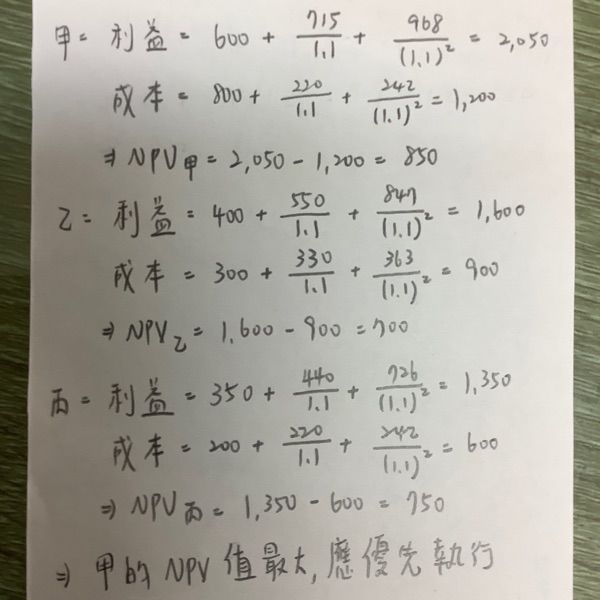 甲= 利益 = 600 + 715/1.1 + 968/(1.1)² = 2,050
成本 = 800 + 220/1.1 + 242/(1.1)² = 1,200
⇒ NPV甲 = 2,050 - 1,200 = 850
乙= 利益 = 400 + 550/1.1 + 847/(1.1)² = 1,600
成本 = 300 + 330/1.1 + 363/(1.1)² = 900
⇒ NPV乙 = 1,600 - 900 = 700
丙= 利益 = 350 + 440/1.1 + 726/(1.1)² = 1,350
成本 = 200 + 220/1.1 + 242/(1.1)² = 600
⇒ NPV丙 = 1,350 - 600 = 750
⇒ 甲的 NPV 值最大, 應優先執行